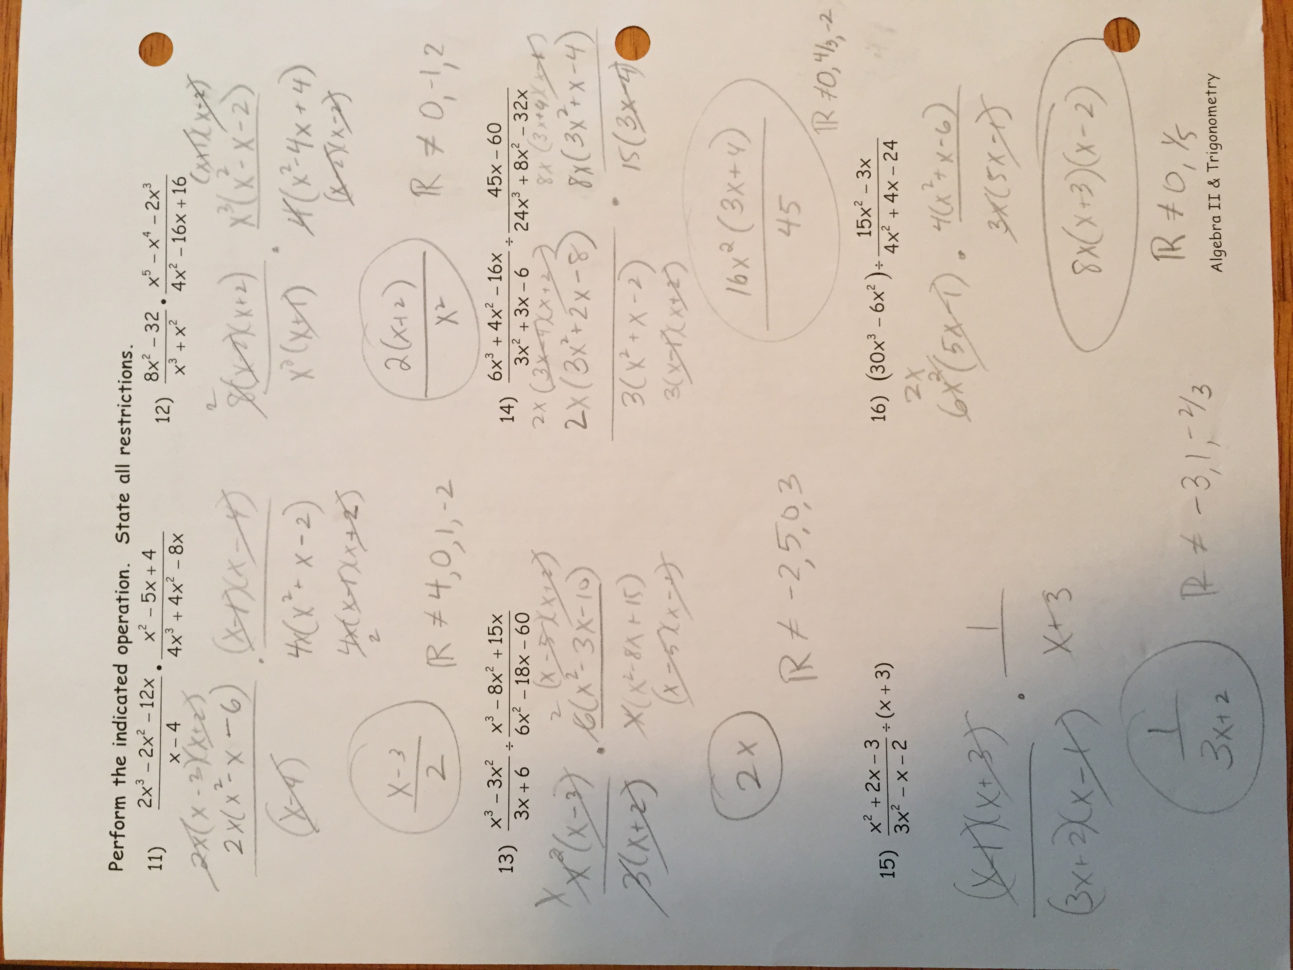 Perform the indicated operation. State all restrictions.
11) (2x³ − 2x² − 12x)/(x − 4) • (x² − 5x + 4)/(4x³ + 4x² − 8x)
2x(x − 3)(x+2)
2x(x² − x − 6)
(x−4)
· (x−1)(x−4)
4x(x² + x − 2)
4x(x−1)(x+2)
2
(x−3)/2
ℝ ≠ 4, 0, 1, −2
12) (8x² − 32)/(x³ + x²) • (x⁵ − x⁴ − 2x³)/(4x² − 16x + 16)
(x+1)(x−2)
2
8(x−2)(x+2)
x²(x+1)
· x³(x² − x − 2)
4(x² − 4x + 4)
(x−2)(x−2)
2(x+2)/x²
ℝ ≠ 0, −1, 2
13) (x³ − 3x²)/(3x + 6) ÷ (x³ − 8x² + 15x)/(6x² − 18x − 60)
x
x²(x−3)
3(x+2)
2 (x−5)(x+2)
· 6(x² − 3x − 10)
x(x² − 8x + 15)
2x
ℝ ≠ −2, 5, 0, 3
14) (6x³ + 4x² − 16x)/(3x² + 3x − 6) ÷ (45x − 60)/(24x³ + 8x² − 32x)
2x(3x−4)(x+2)
2x(3x² + 2x − 8)
3(x² + x − 2)
3(x−1)(x+2)
8x(3x² + x − 4)
· 15(3x−4)
16x²(3x+4)/45
ℝ ≠ 0, 4/3, −2
15) (x² + 2x − 3)/(3x² − x − 2) ÷ (x + 3)
(x−1)(x+3)
(3x+2)(x−1)
· 1/(x+3)
1/(3x+2)
ℝ ≠ −3, 1, −2/3
16) (30x³ − 6x²) ÷ (15x² − 3x)/(4x² + 4x − 24)
2x
6x²(5x−1) · 4(x² + x − 6)
3x(5x−1)
8x(x+3)(x−2)
ℝ ≠ 0, 1/5
Algebra II & Trigonometry